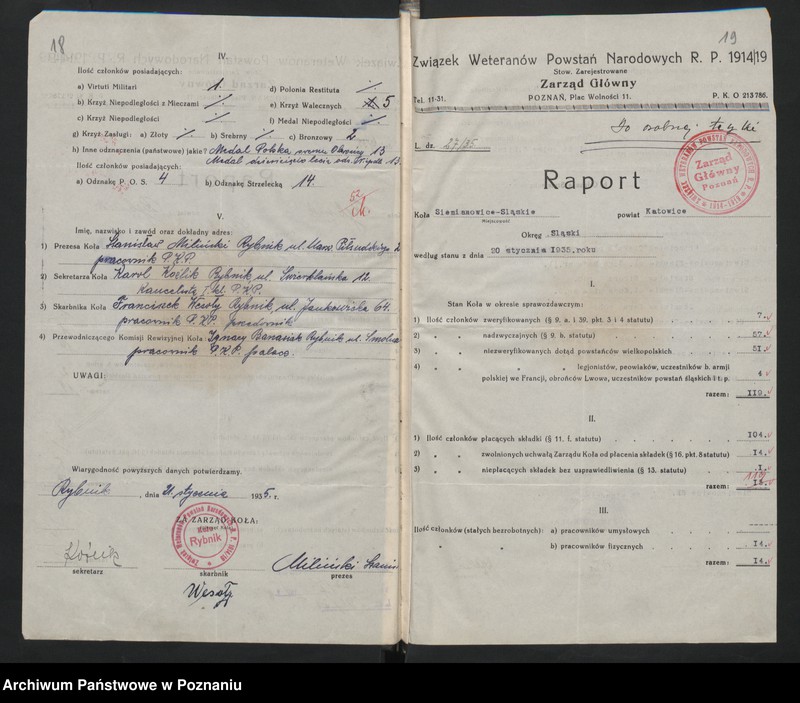 18
IV.
Ilość członków posiadających:
a) Virtuti Militari 1.
d) Polonia Restituta
b) Krzyż Niepodległości z Mieczami
e) Krzyż Walecznych 5
c) Krzyż Niepodległości
f) Medal Niepodległości
g) Krzyż Zasługi: a) Złoty b) Srebrny c) Bronzowy 2
h) Inne odznaczenia (państwowe) jakie? Medal Polska 13
Ilość członków posiadających: Medal 13.
a) Odznakę P. O. S. 4 b) Odznakę Strzelecką 14.
V.
Imię, nazwisko i zawód oraz dokładny adres:
1) Prezesa Koła Stanisław Miliński Rybnik ul. Marsz. Piłsudskiego 2
pracownik P.K.P.
2) Sekretarza Koła Karol Koźlik Rybnik ul. Świerklańska 12.
P.K.P.
3) Skarbnika Koła Franciszek Wesoły Rybnik, ul. Jankowicka 64.
pracownik P.K.P.
4) Przewodniczącego Komisji Rewizyjnej Koła: Ignacy Banasiak Rybnik ul.
pracownik P.K.P. palacz.
UWAGI:
Wiarygodność powyższych danych potwierdzamy.
Rybnik, dnia 21. stycznia 1935. r.
ZA ZARZĄD KOŁA:
Koło
Rybnik
sekretarz
skarbnik
Wesoły
Miliński
prezes
19
Związek Weteranów Powstań Narodowych R. P. 1914/19
Stow. Zarejestrowane
Zarząd Główny
Tel. 11-31. POZNAŃ, Plac Wolności 11. P. K. O 213786.
Do osobnej teczki
L. dz. 27/35
ZWIĄZEK WETERANÓW POWSTAŃ NARODOWYCH R. P.
Zarząd
Główny
Poznań
Raport
Koła Siemianowice-Śląskie powiat Katowice
Miejscowość
Okręg Śląski
według stanu z dnia 20 stycznia 1935.roku
I.
Stan Koła w okresie sprawozdawczym:
1) Ilość członków zweryfikowanych (§ 9. a. i 39. pkt. 3 i 4 statutu) 7.
2) „ „ nadzwyczajnych (§ 9. b. statutu) 57.
3) „ „ niezweryfikowanych dotąd powstańców wielkopolskich 51.
4) „ „ „ legjonistów, peowiaków, uczestników b. armji
polskiej we Francji, obrońców Lwowa, uczestników powstań śląskich i t. p. 4
razem: 119.
II.
1) Ilość członków płacących składki (§ 11. f. statutu) 104.
2) „ „ zwolnionych uchwałą Zarządu Koła od płacenia składek (§ 16. pkt. 8 statutu) 14.
3) „ „ niepłacących składek bez usprawiedliwienia (§ 13. statutu) 1.
119
razem:
III.
Ilość członków (stałych bezrobotnych): a) pracowników umysłowych
„ „ b) pracowników fizycznych 14.
razem: 14.
Archiwum Państwowe w Poznaniu